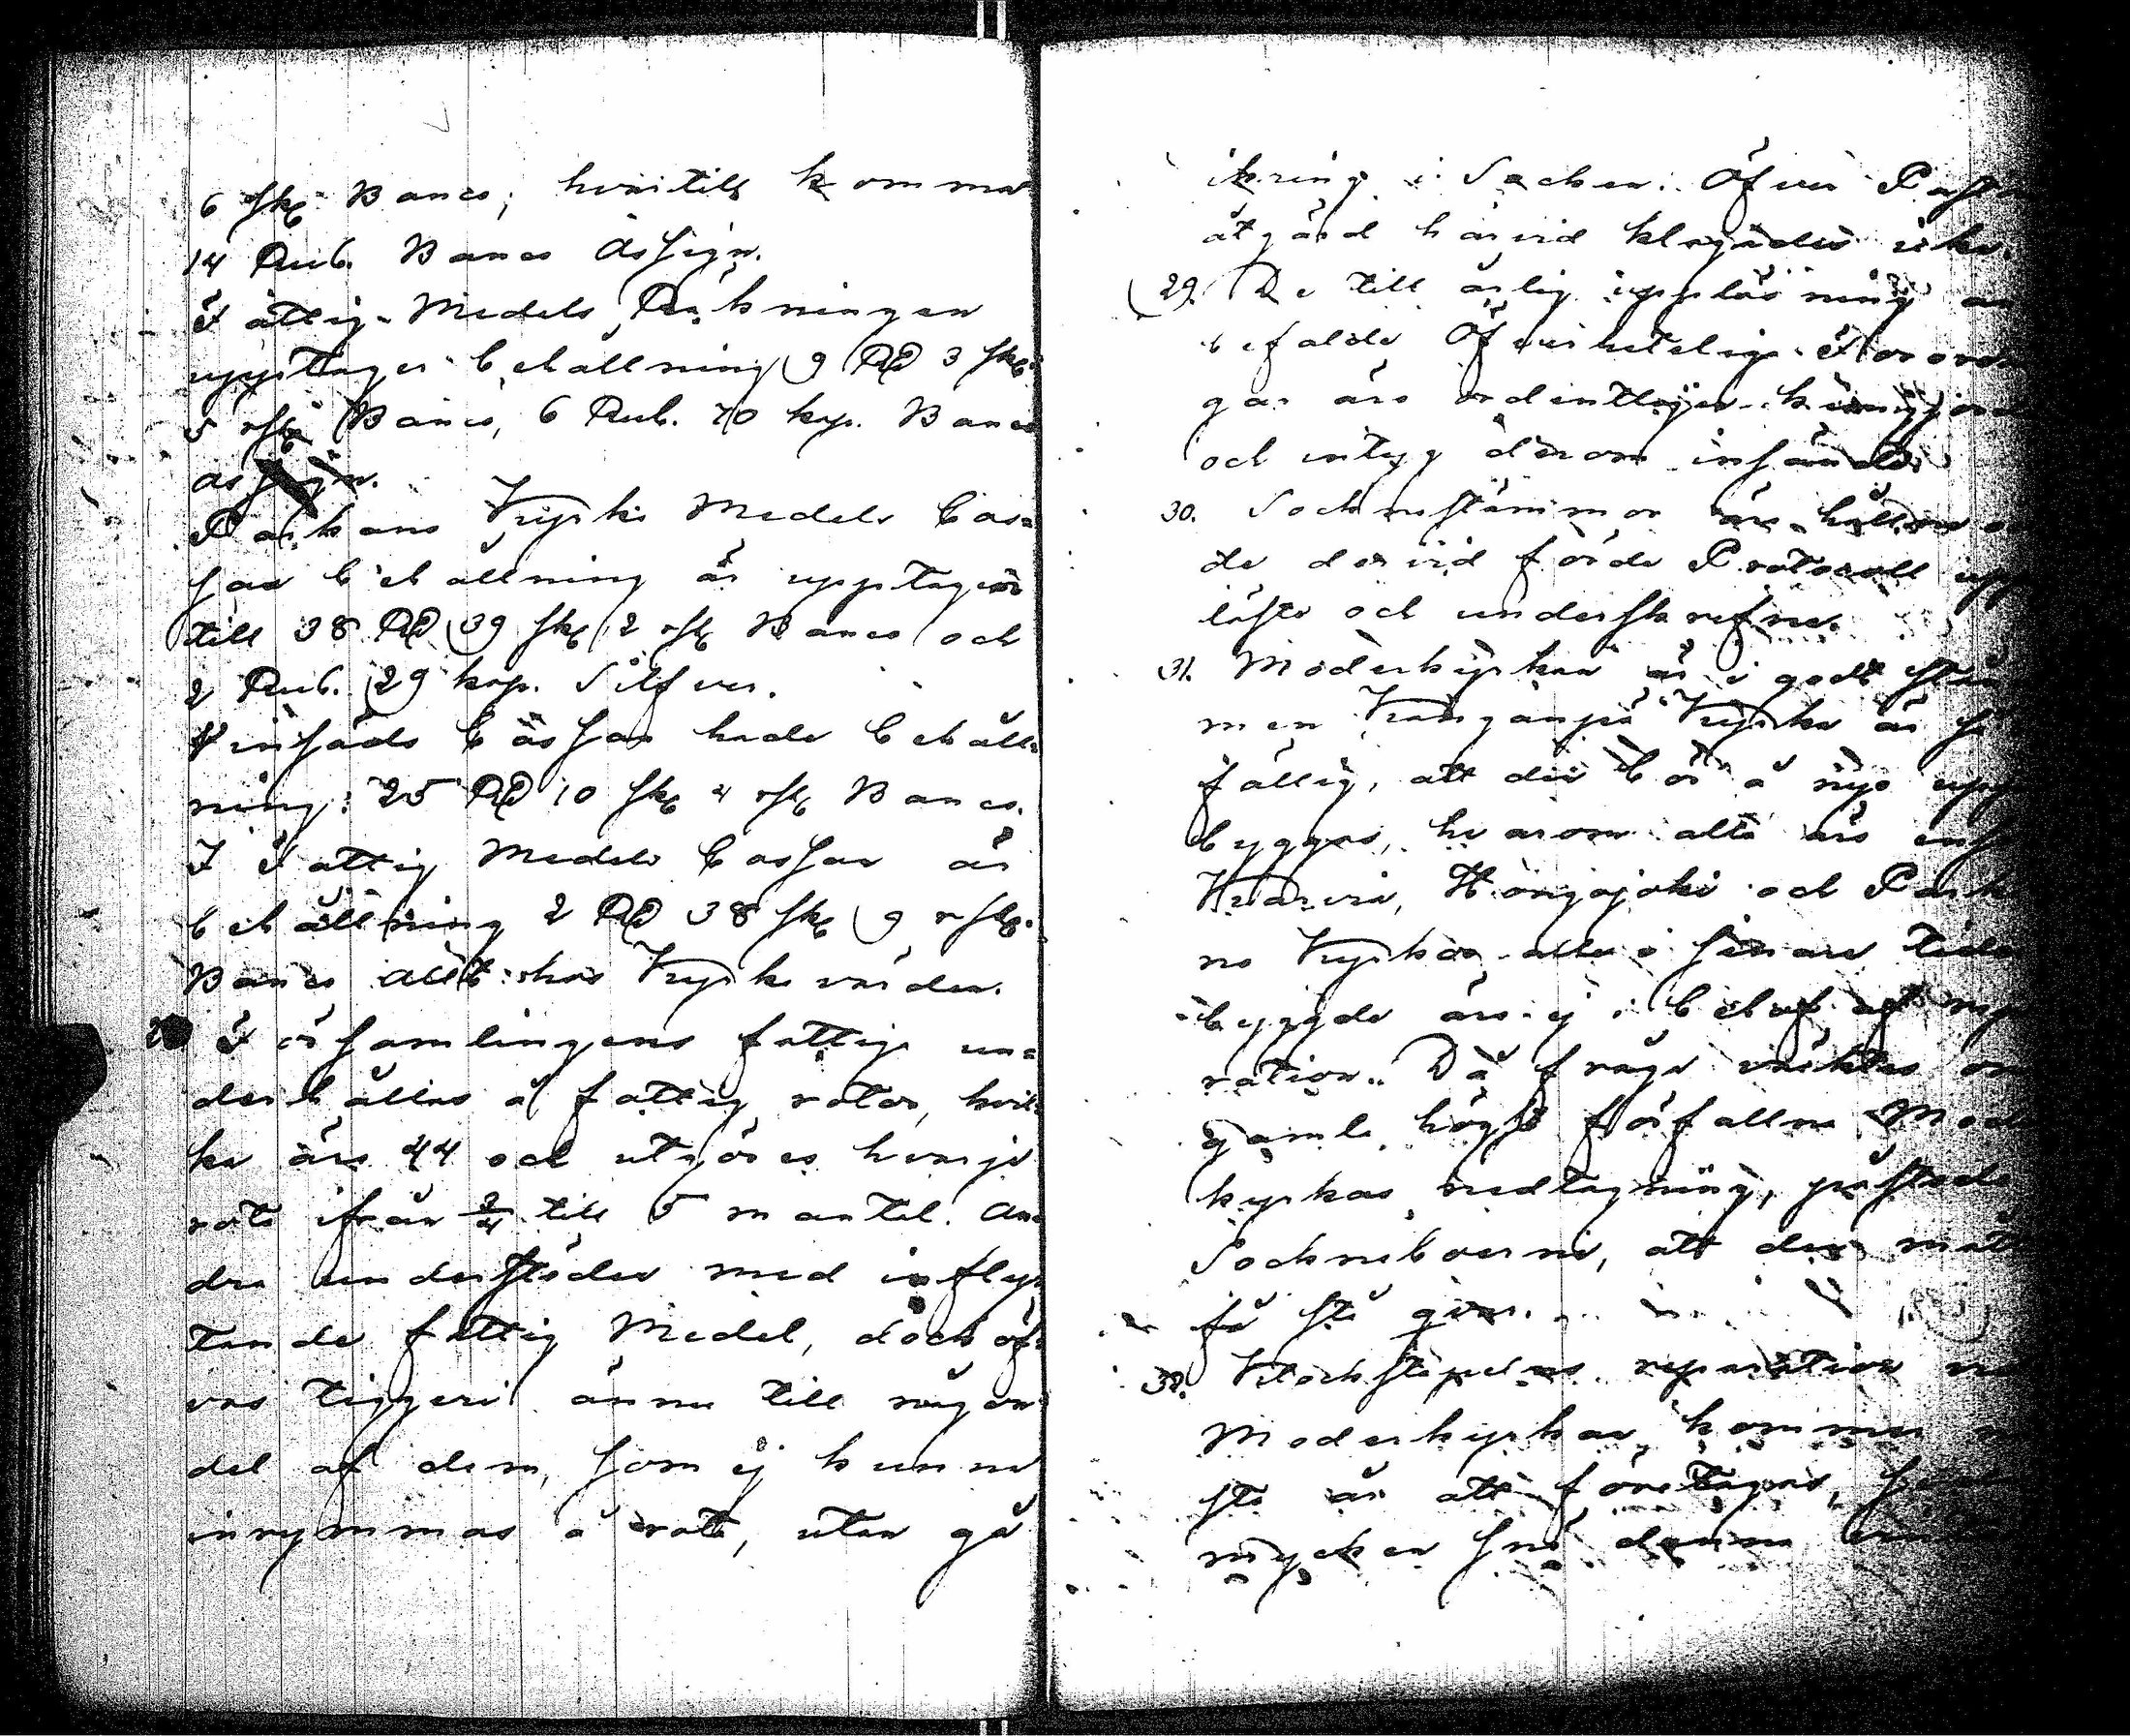 6 sk Banco; hvartill komma
14 Rub. Banco Assign.
Fattig-Medels Räkningen
upptager behållning 9 RD 3 sk
5 rst Banco, 6 Rub. 70 kop. Banco
assign.
Parkano Kyrko Medels Cas=
san behållning är upptagen
till 38 RD 39 sk 2 rst Banco och
2 Rub. 29 kop. Silfver.
Vinsäds Cassan hade behåll=
ning: 25 RD 10 sk 4 rst Banco.
I Fattig Medels Cassan är
behållning 2 RD 38 sk 9 rst
Banco allt hos Kyrko värden.
Församlingens fattige un=
derhållas å fattig rotar, hvil=
ka äro 44 och utgöres hvarje
rote ifrån 3/4 till 5 mantal. An=
dra understödes med infly=
tande fattig Medel, dock öf=
vas tiggeri ännu till någon
del af dem, som ej kunna
inrymmas å rote, utan gå
ikring i Socknen. Öfver Past
åtgärd härvid klagades icke.
29. De till årlig uppläsning an
befalde Öfverhetelige Förord
gar äro ordentligen kungjord
och intyg derom insände.
30. Socknestämmor äro hållne o
de dervid förde Protocoll upp
läste och underskrefne.
31. Moderkyrkan är i godt stån
men Kangänpä Kyrka är så
fällig, att den bör å nyo upp
byggas, hvarom alla äro ens
Karvia, Hongojoki och Park
no Kyrkor alla i senare tide
byggde äro ej i behof af rep
ration. Då fråga väcktes om
gamle högst förfallne Mod
kyrkas nedtagning, påstodo
Sockneboerne, att den måtte
få stå qvar.
32. Klockstapelns reparation v
Moderkyrkan kommer n
sta år att företagas,
mycken snö denna